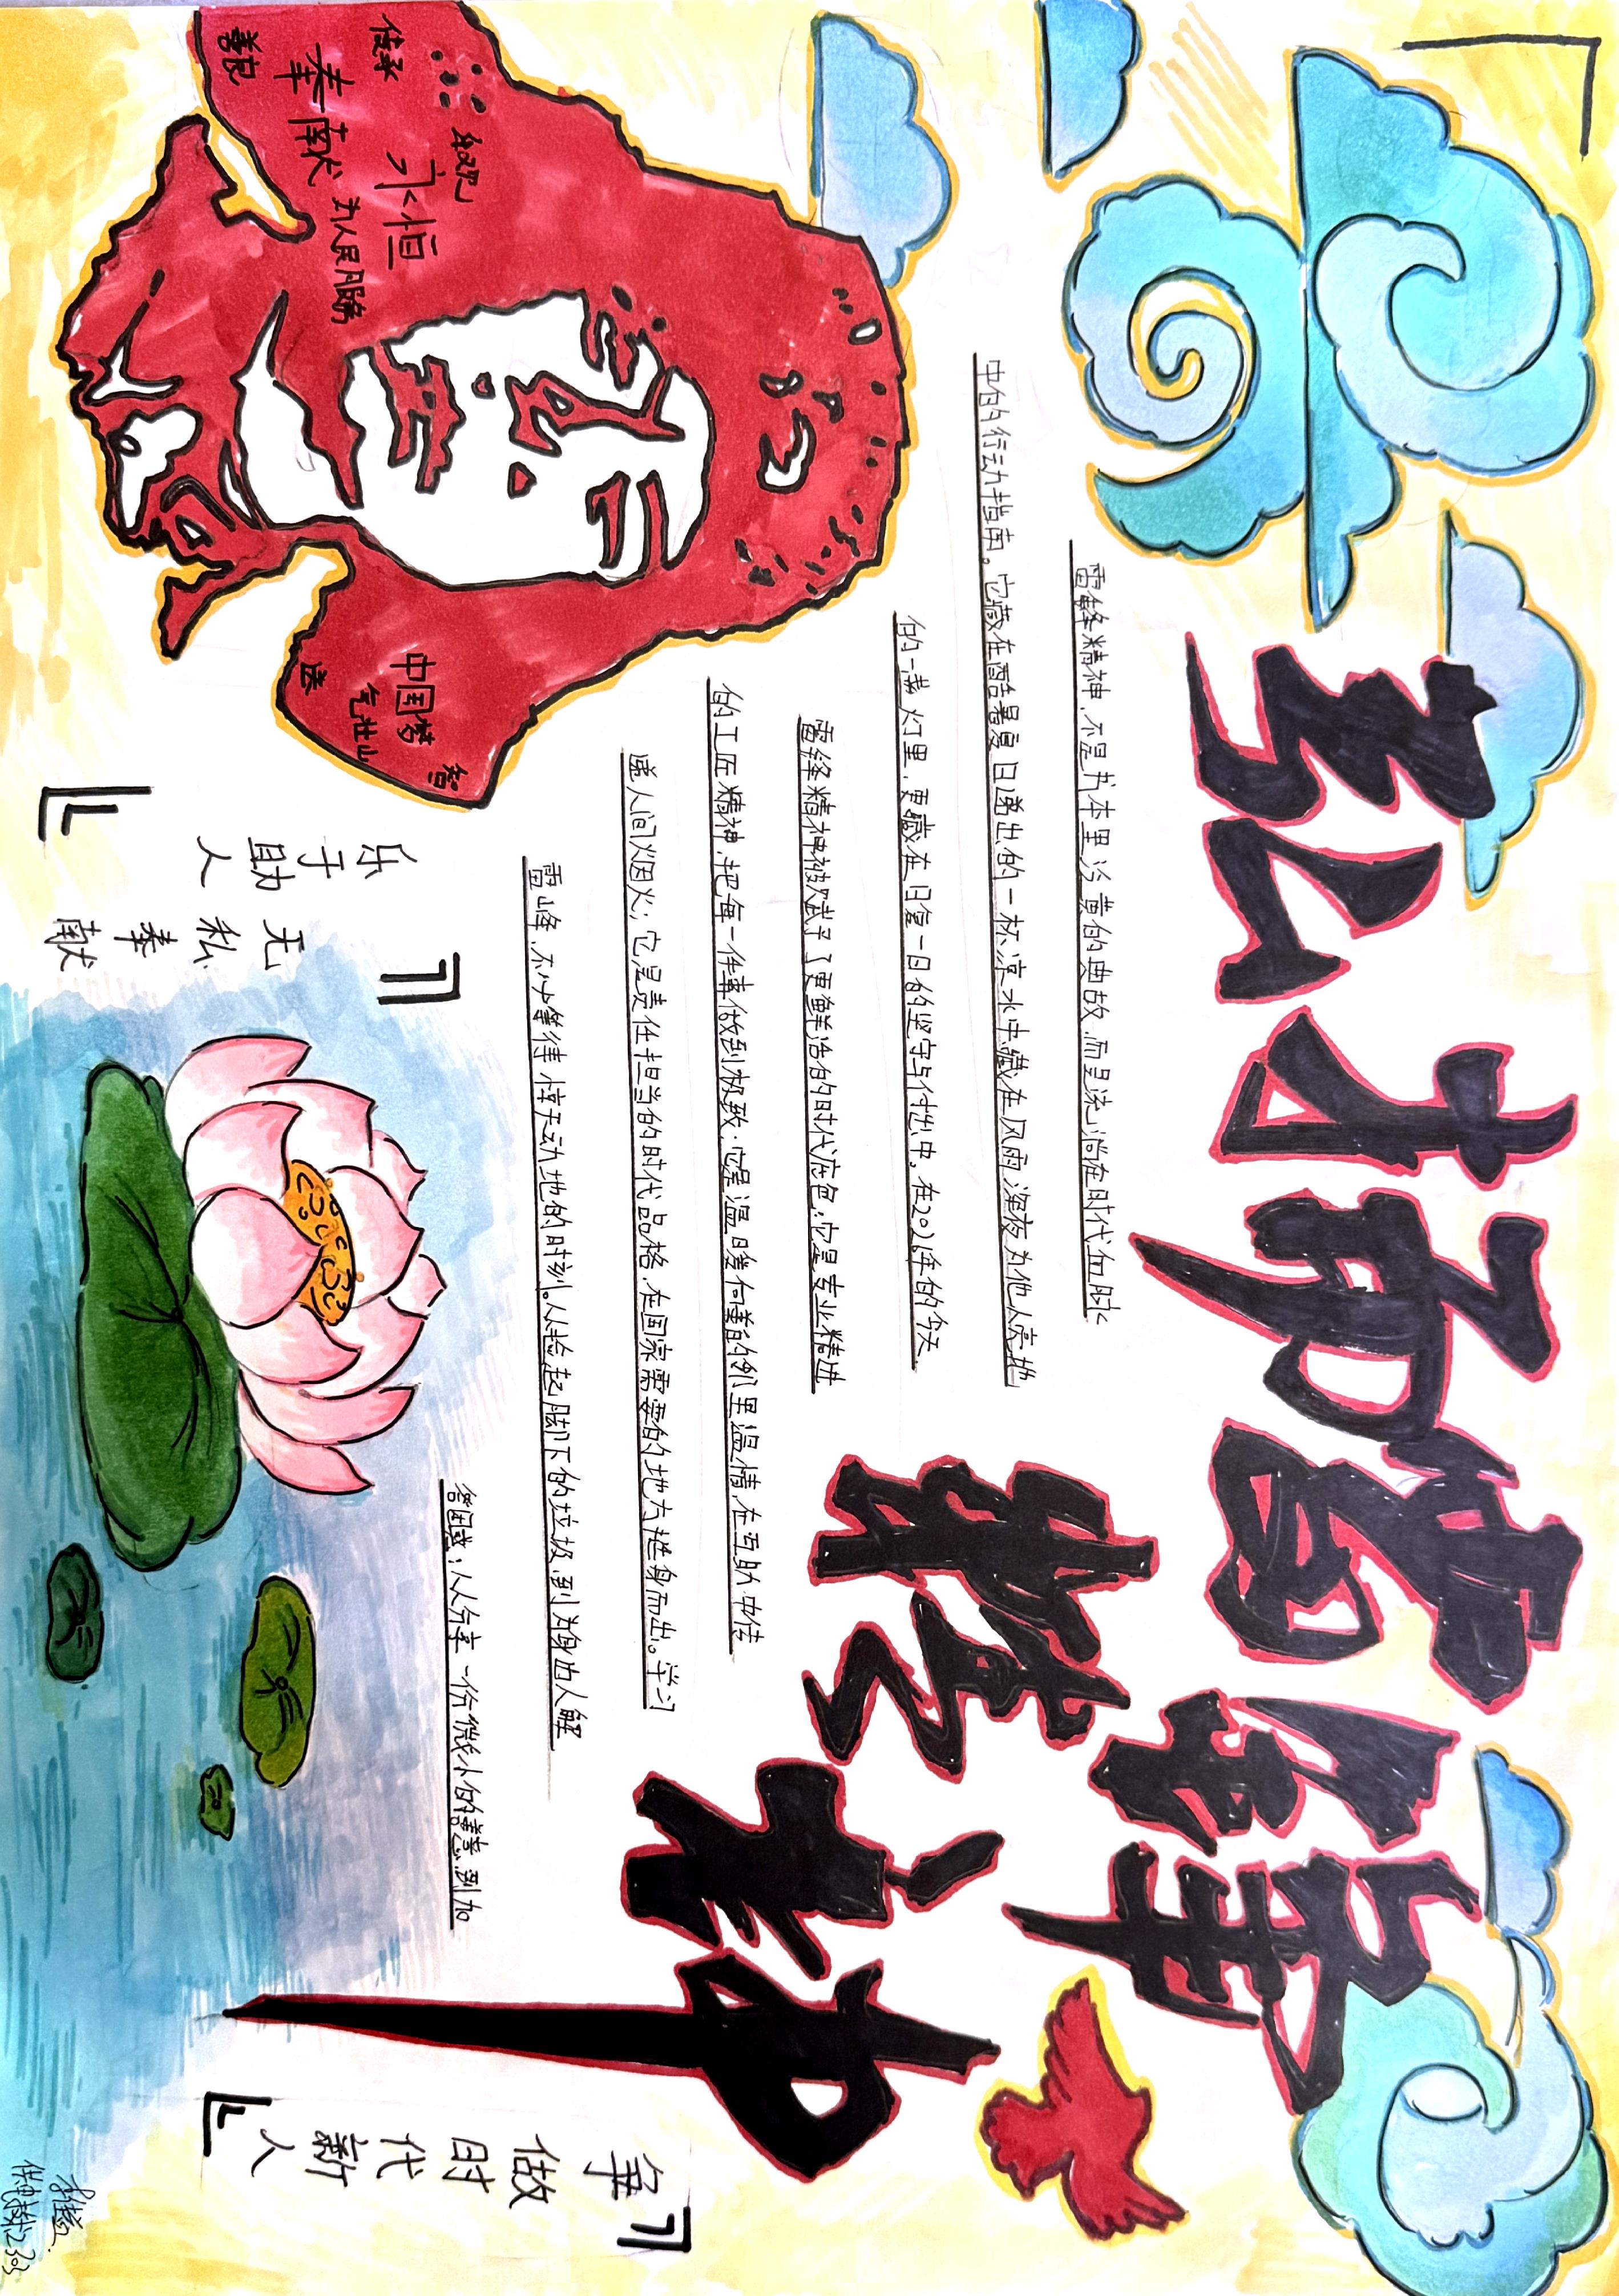 弘扬雷锋
精神
雷锋精神,不是书本里泛黄的典故,而是流淌在时代血脉
中的行动指南。它藏在酷暑夏日递出的一杯凉水中,藏在风雨深夜为他人亮地
的一盏灯里,更藏在日复一日的坚守与付出中。在2026年的今天,
雷锋精神被赋予了更鲜活的时代底色:它是专业精进
的工匠精神,把每一件事做到极致;它是温暖向善的邻里温情,在互助中传
递人间烟火;它是责任担当的时代品格,在国家需要的地方挺身而出。学习
雷峰,不必等待惊天动地的时刻。从捡起脚下的垃圾,到为身边人解
答困惑;从分享一份微小的善意,到加
传承
善良
奉献
永恒
为人民服务
中国梦
气壮山
智
乐于助人
无私奉献
争做时代新人
2303